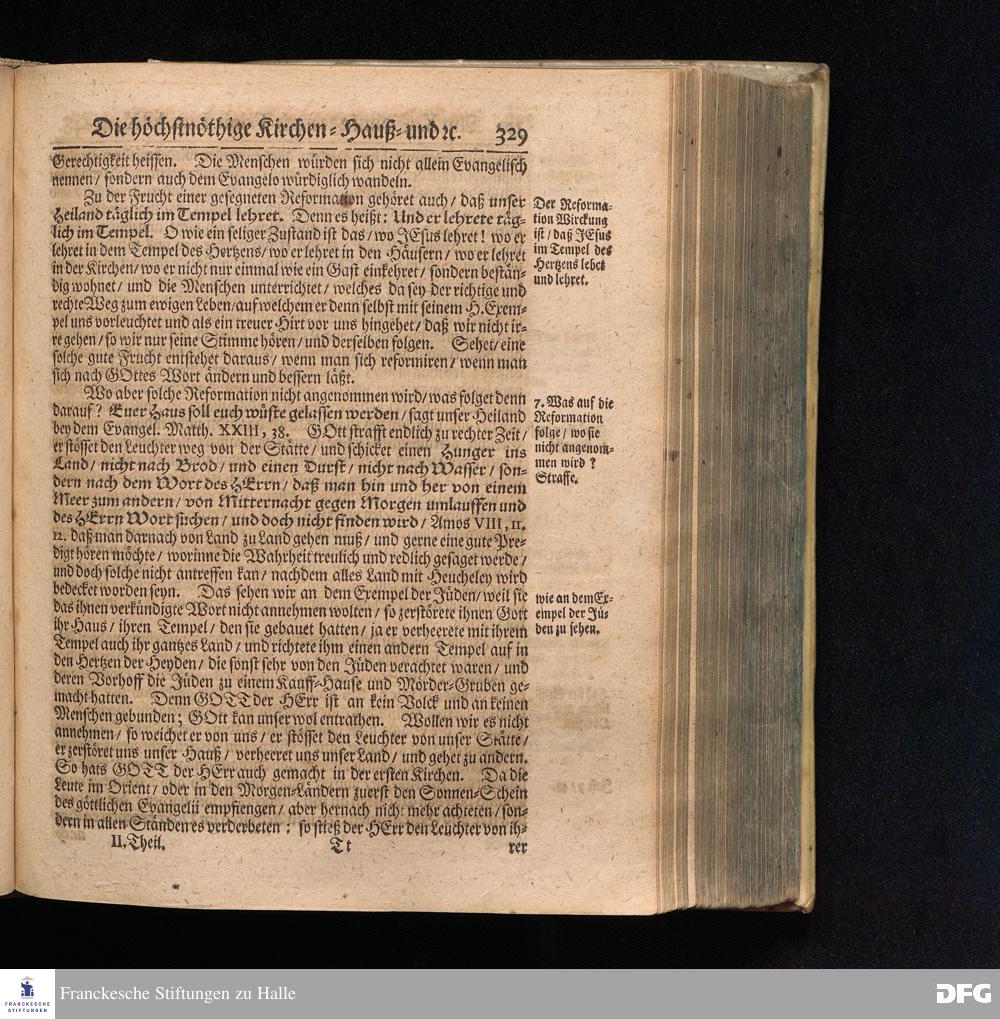 Die höchstnöthige Kirchen-Hauß- und ꝛc. 329
Gerechtigkeit heissen. Die Menschen würden sich nicht allein Evangelisch
nennen/ sondern auch dem Evangelo würdiglich wandeln.
Zu der Frucht einer gesegneten Reformation gehöret auch/ daß unser
Heiland täglich im Tempel lehret. Denn es heißt: Und er lehrete täg-
lich im Tempel. O wie ein seliger Zustand ist das/ wo JEsus lehret! wo er
lehret in dem Tempel des Hertzens/ wo er lehret in den Häusern/ wo er lehret
in der Kirchen/ wo er nicht nur einmal wie ein Gast einkehret/ sondern bestän-
dig wohnet/ und die Menschen unterrichtet/ welches da sey der richtige und
rechte Weg zum ewigen Leben/ auf welchem er denn selbst mit seinem H. Exem-
pel uns vorleuchtet und als ein treuer Hirt vor uns hingehet/ daß wir nicht ir-
re gehen/ so wir nur seine Stimme hören/ und derselben folgen. Sehet/ eine
solche gute Frucht entstehet daraus/ wenn man sich reformiren/ wenn man
sich nach GOttes Wort ändern und bessern läßt.
Der Reforma-
tion Wirckung
ist/ daß JEsus
im Tempel des
Hertzens lebet
und lehret.
Wo aber solche Reformation nicht angenommen wird/ was folget denn
darauf? Euer Haus soll euch wüste gelassen werden/ sagt unser Heiland
bey dem Evangel. Matth. XXIII, 38. GOtt strafft endlich zu rechter Zeit/
er stösset den Leuchter weg von der Stätte/ und schicket einen Hunger ins
Land/ nicht nach Brod/ und einen Durst/ nicht nach Wasser/ son-
dern nach dem Wort des HErrn/ daß man hin und her von einem
Meer zum andern/ von Mitternacht gegen Morgen umlauffen und
des HErrn Wort suchen/ und doch nicht finden wird/ Amos VIII, 11.
12. daß man darnach von Land zu Land gehen muß/ und gerne eine gute Pre-
digt hören möchte/ worinne die Wahrheit treulich und redlich gesaget werde/
und doch solche nicht antreffen kan/ nachdem alles Land mit Heucheley wird
bedecket worden seyn. Das sehen wir an dem Exempel der Jüden/ weil sie
das ihnen verkündigte Wort nicht annehmen wolten/ so zerstörete ihnen Gott
ihr Haus/ ihren Tempel/ den sie gebauet hatten/ ja er verheerete mit ihrem
Tempel auch ihr gantzes Land/ und richtete ihm einen andern Tempel auf in
den Hertzen der Heyden/ die sonst sehr von den Jüden verachtet waren/ und
deren Vorhoff die Jüden zu einem Kauff-Hause und Mörder-Gruben ge-
macht hatten. Denn GOTT der HErr ist an kein Volck und an keinen
Menschen gebunden; GOtt kan unser wol entrathen. Wollen wir es nicht
annehmen/ so weichet er von uns/ er stösset den Leuchter von unser Stätte/
er zerstöret uns unser Hauß/ verheeret uns unser Land/ und gehet zu andern.
So hats GOTT der HErr auch gemacht in der ersten Kirchen. Da die
Leute im Orient/ oder in den Morgen-Ländern zuerst den Sonnen-Schein
des göttlichen Evangelii empfiengen/ aber hernach nicht mehr achteten/ son-
dern in allen Ständen es verderbeten; so stieß der HErr den Leuchter von ih-
7. Was auf die
Reformation
folge/ wo sie
nicht angenom-
men wird?
Straffe.
wie an dem Ex-
empel der Jü-
den zu sehen.
II. Theil. Tt rer
FRANCKESCHE
STIFTUNGEN
Franckesche Stiftungen zu Halle
DFG